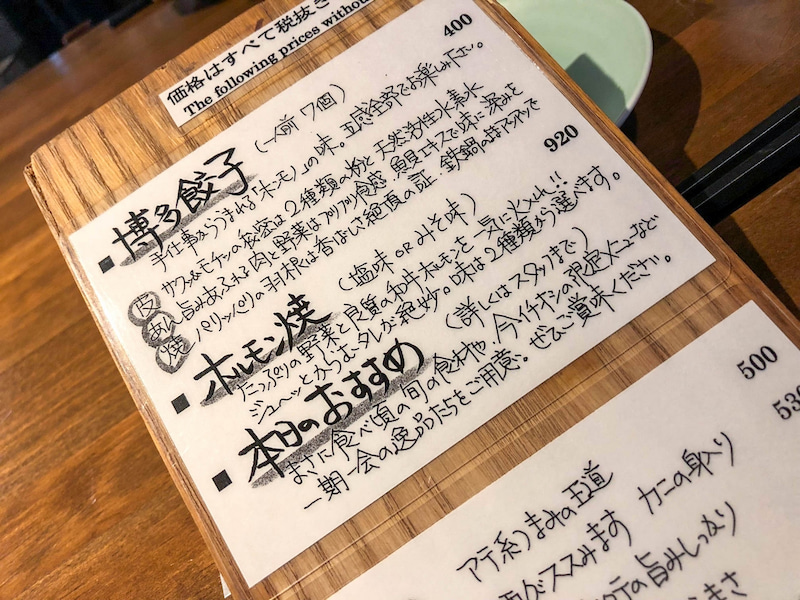 価格はすべて税抜き
The following prices withou
400
■ 博多餃子 (一人前 7個)
手仕事からうまれる「ホンモノ」の味。五感全部でお楽しみください。
皮 サクッ&モチッの秘密は2種類の粉と天然活性水素水
あん 旨みあふれる肉と野菜はプリプリ食感 魚貝エキスで味に深みを
焼 パリッパリの羽根は香ばしさ絶頂の証。鉄鍋の
920
■ ホルモン焼 (塩味 or みそ味)
たっぷりの野菜と良質の和牛ホルモンを一気に火入れ!!
ジューッとからむタレが絶妙。味は2種類から選べます。
■ 本日のおすすめ (詳しくはスタッフまで)
まさに食べ頃の旬の食材や、今イチオシの限定メニューなど
一期一会の逸品たちをご用意。ぜひご賞味ください。
500
530
アテ系つまみの王道
ススみます カニの身入り
の旨みしっかり